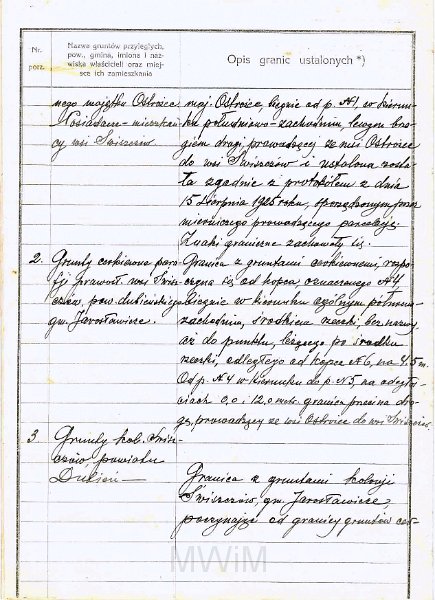 Nr. porz.
Nazwa gruntów przyległych, pow., gmina, imiona i nazwiska właścicieli oraz miejsce ich zamieszkania
Opis granic ustalonych *)
nego majątku Ostroiec
Posiadacze-mieszkań
cy, wsi Świszczów
maj. Ostroiec, biegnie od p. №1, w kierun
ku południowo-zachodnim, lewym brze
giem drogi, prowadzącej ze wsi Ostroiec
do wsi Świszczów i ustalona zosta
ła zgodnie z protokółem z dnia
15 sierpnia 1925 roku, sporządzonym przez
mierniczego prowadzącego parcelację.
Znaki graniczne zachowały się.
2. Grunty cerkiewne para
fji prawosł. wsi Świsz
czów, pow. dubieńskiego
gm. Jarosławicze.
Granica z gruntami cerkiewnemi, rozpo
czyna się od kopca, oznaczonego №4
biegnie w kierunku ogólnym północno-
zachodnim, środkiem rzeczki, bez nazwy
aż do punktu, leżącego po środku
rzeczki, odległego od kopca №6, na 4.5 m.
Od p. №4 w kierunku do p. №5, na odległo
ściach 0,0 i 12,0 mtr. granica przecina dro
gę, prowadzącą ze wsi Ostroiec do wsi Świszczów.
3 Grunty kol. Świsz
czów powiatu
Dubień—
Granica z gruntami kolonji
Świszczów, gm. Jarosławicze,
poczynając od granicy gruntów cer-
MWiM